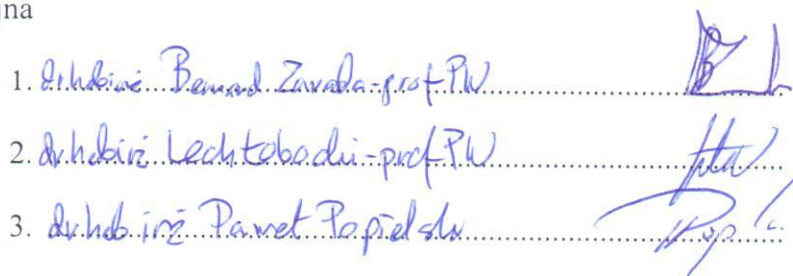 jna
1. dr hab inż Bernard Zawada - prof PW
2. dr hab inż Lech Łobocki - prof PW
3. dr hab inż Paweł Popielski